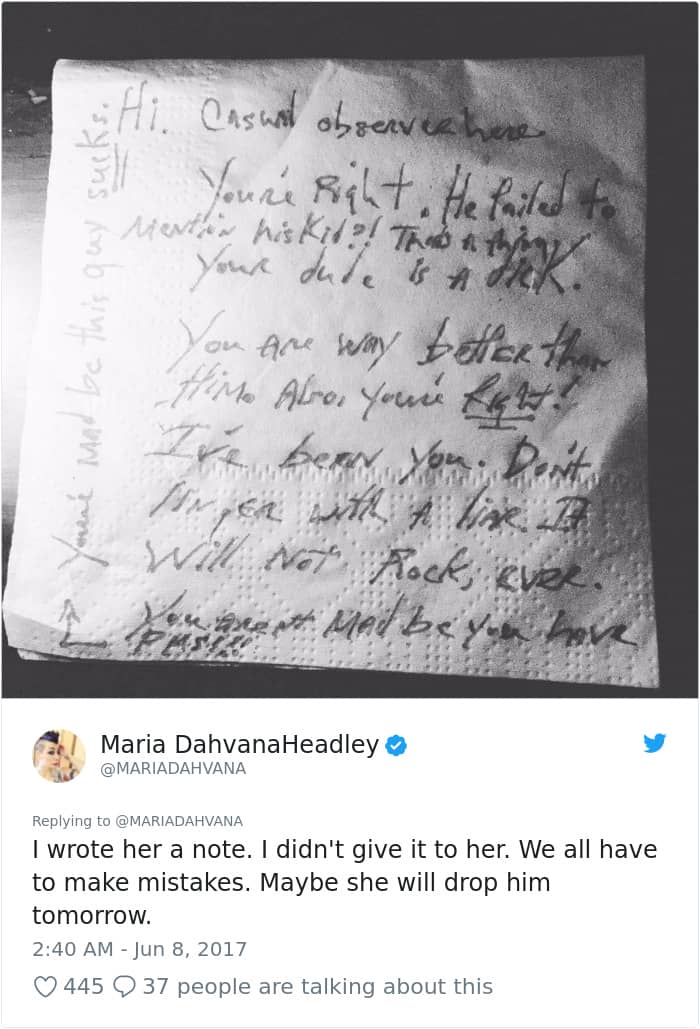 Hi. Casual observer here
You're Right. He failed to
Mention his Kid?! That's a thing
Your dude is A
You are way better than
Him. Also, you're Right!
I've been you. Don't
linger with A liar. It
Will Not Rock, ever.
You aren't Mad be you have
PMS!!!
→ You're Mad be this guy sucks.
Maria DahvanaHeadley
@MARIADAHVANA
Replying to @MARIADAHVANA
I wrote her a note. I didn't give it to her. We all have
to make mistakes. Maybe she will drop him
tomorrow.
2:40 AM - Jun 8, 2017
445 37 people are talking about this